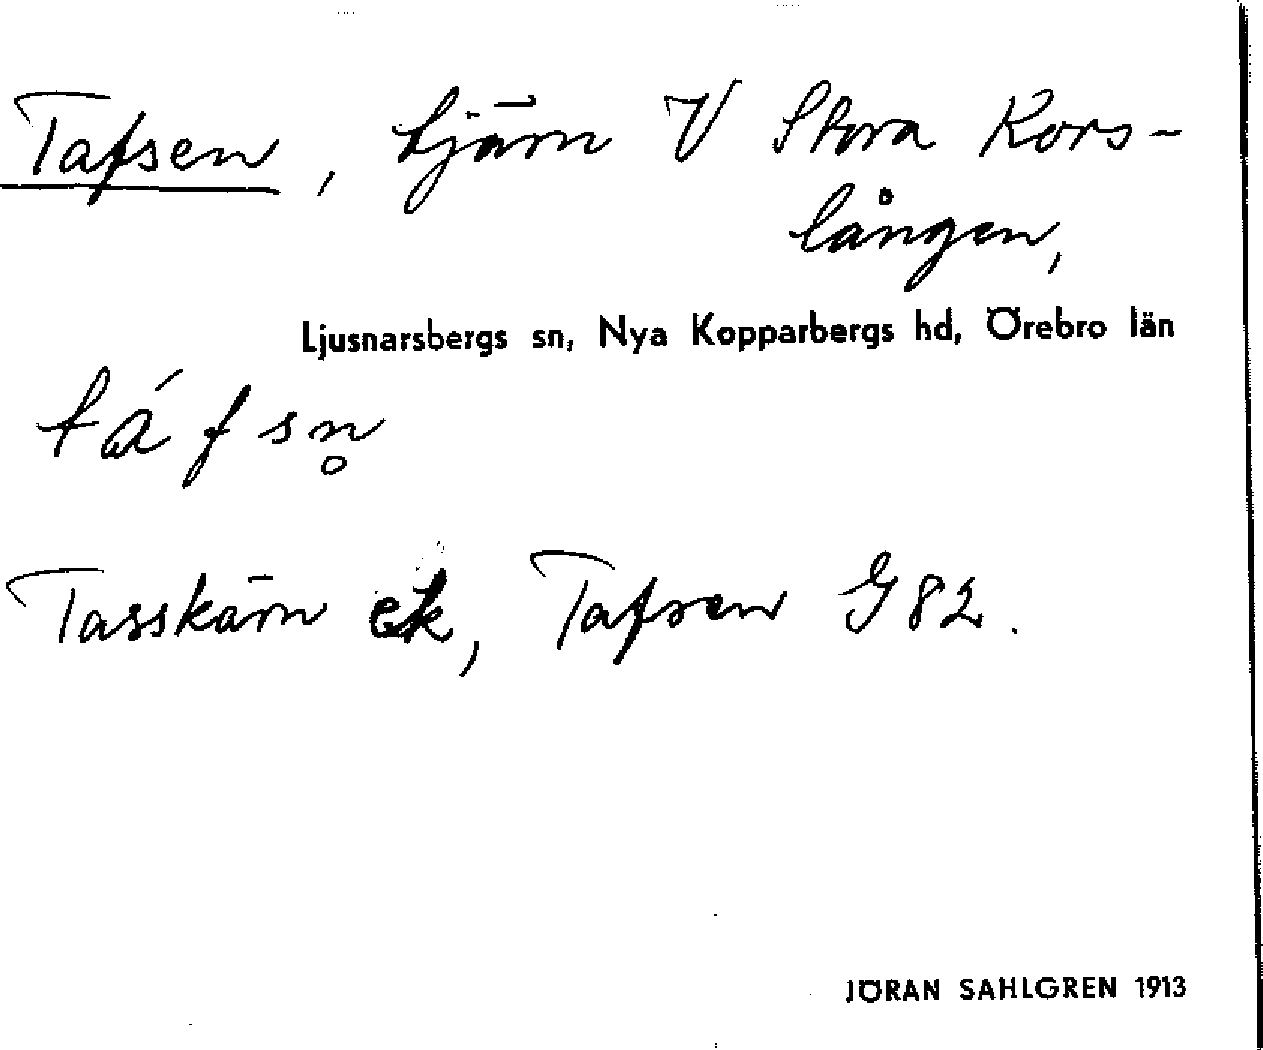 Tafsen, tjärn V Stora Kors-
lången,
Ljusnarsbergs sn, Nya Kopparbergs hd, Örebro län
táfsn̥
Tasskärn ek, Tafsen G 82.
JÖRAN SAHLGREN 1913